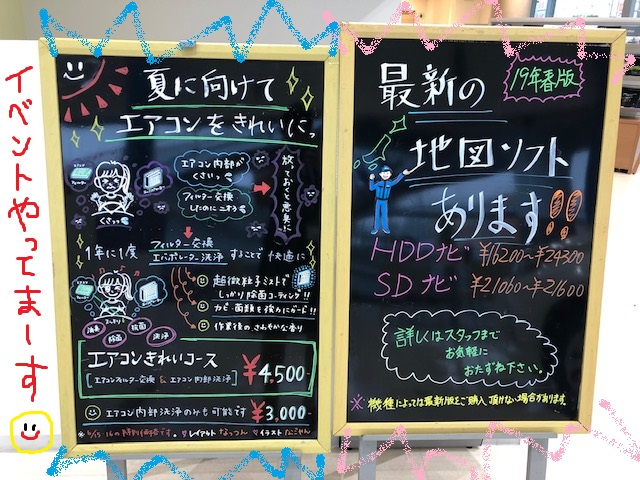 イベントやってまーす
夏に向けて
エアコンをきれいにっ
エアコン内部が
くさいっ
フィルター交換
したのにニオう
放っておくと悪臭に
くさっっ
1年に1度
フィルター交換
エバポレーター洗浄
することで快適に
超微粒子ミストで
しっかり除菌コーティング!!
カビ・菌類を強力にガード!!
作業後のさわやかな香り
消臭
除菌
抗菌
洗浄
エアコンきれいコース
[エアコンフィルター交換 & エアコン内部洗浄]
¥4,500-
エアコン内部洗浄のみも可能です
¥3,000-
レイアウト なっつん
イラスト なごやん
最新の
19年春版
地図ソフト
あります!!
HDDナビ ¥16200~¥24300
SDナビ ¥21060~¥21600
詳しくはスタッフまで
お気軽に
おたずね下さい。
※機種によっては最新版をご購入頂けない場合があります。